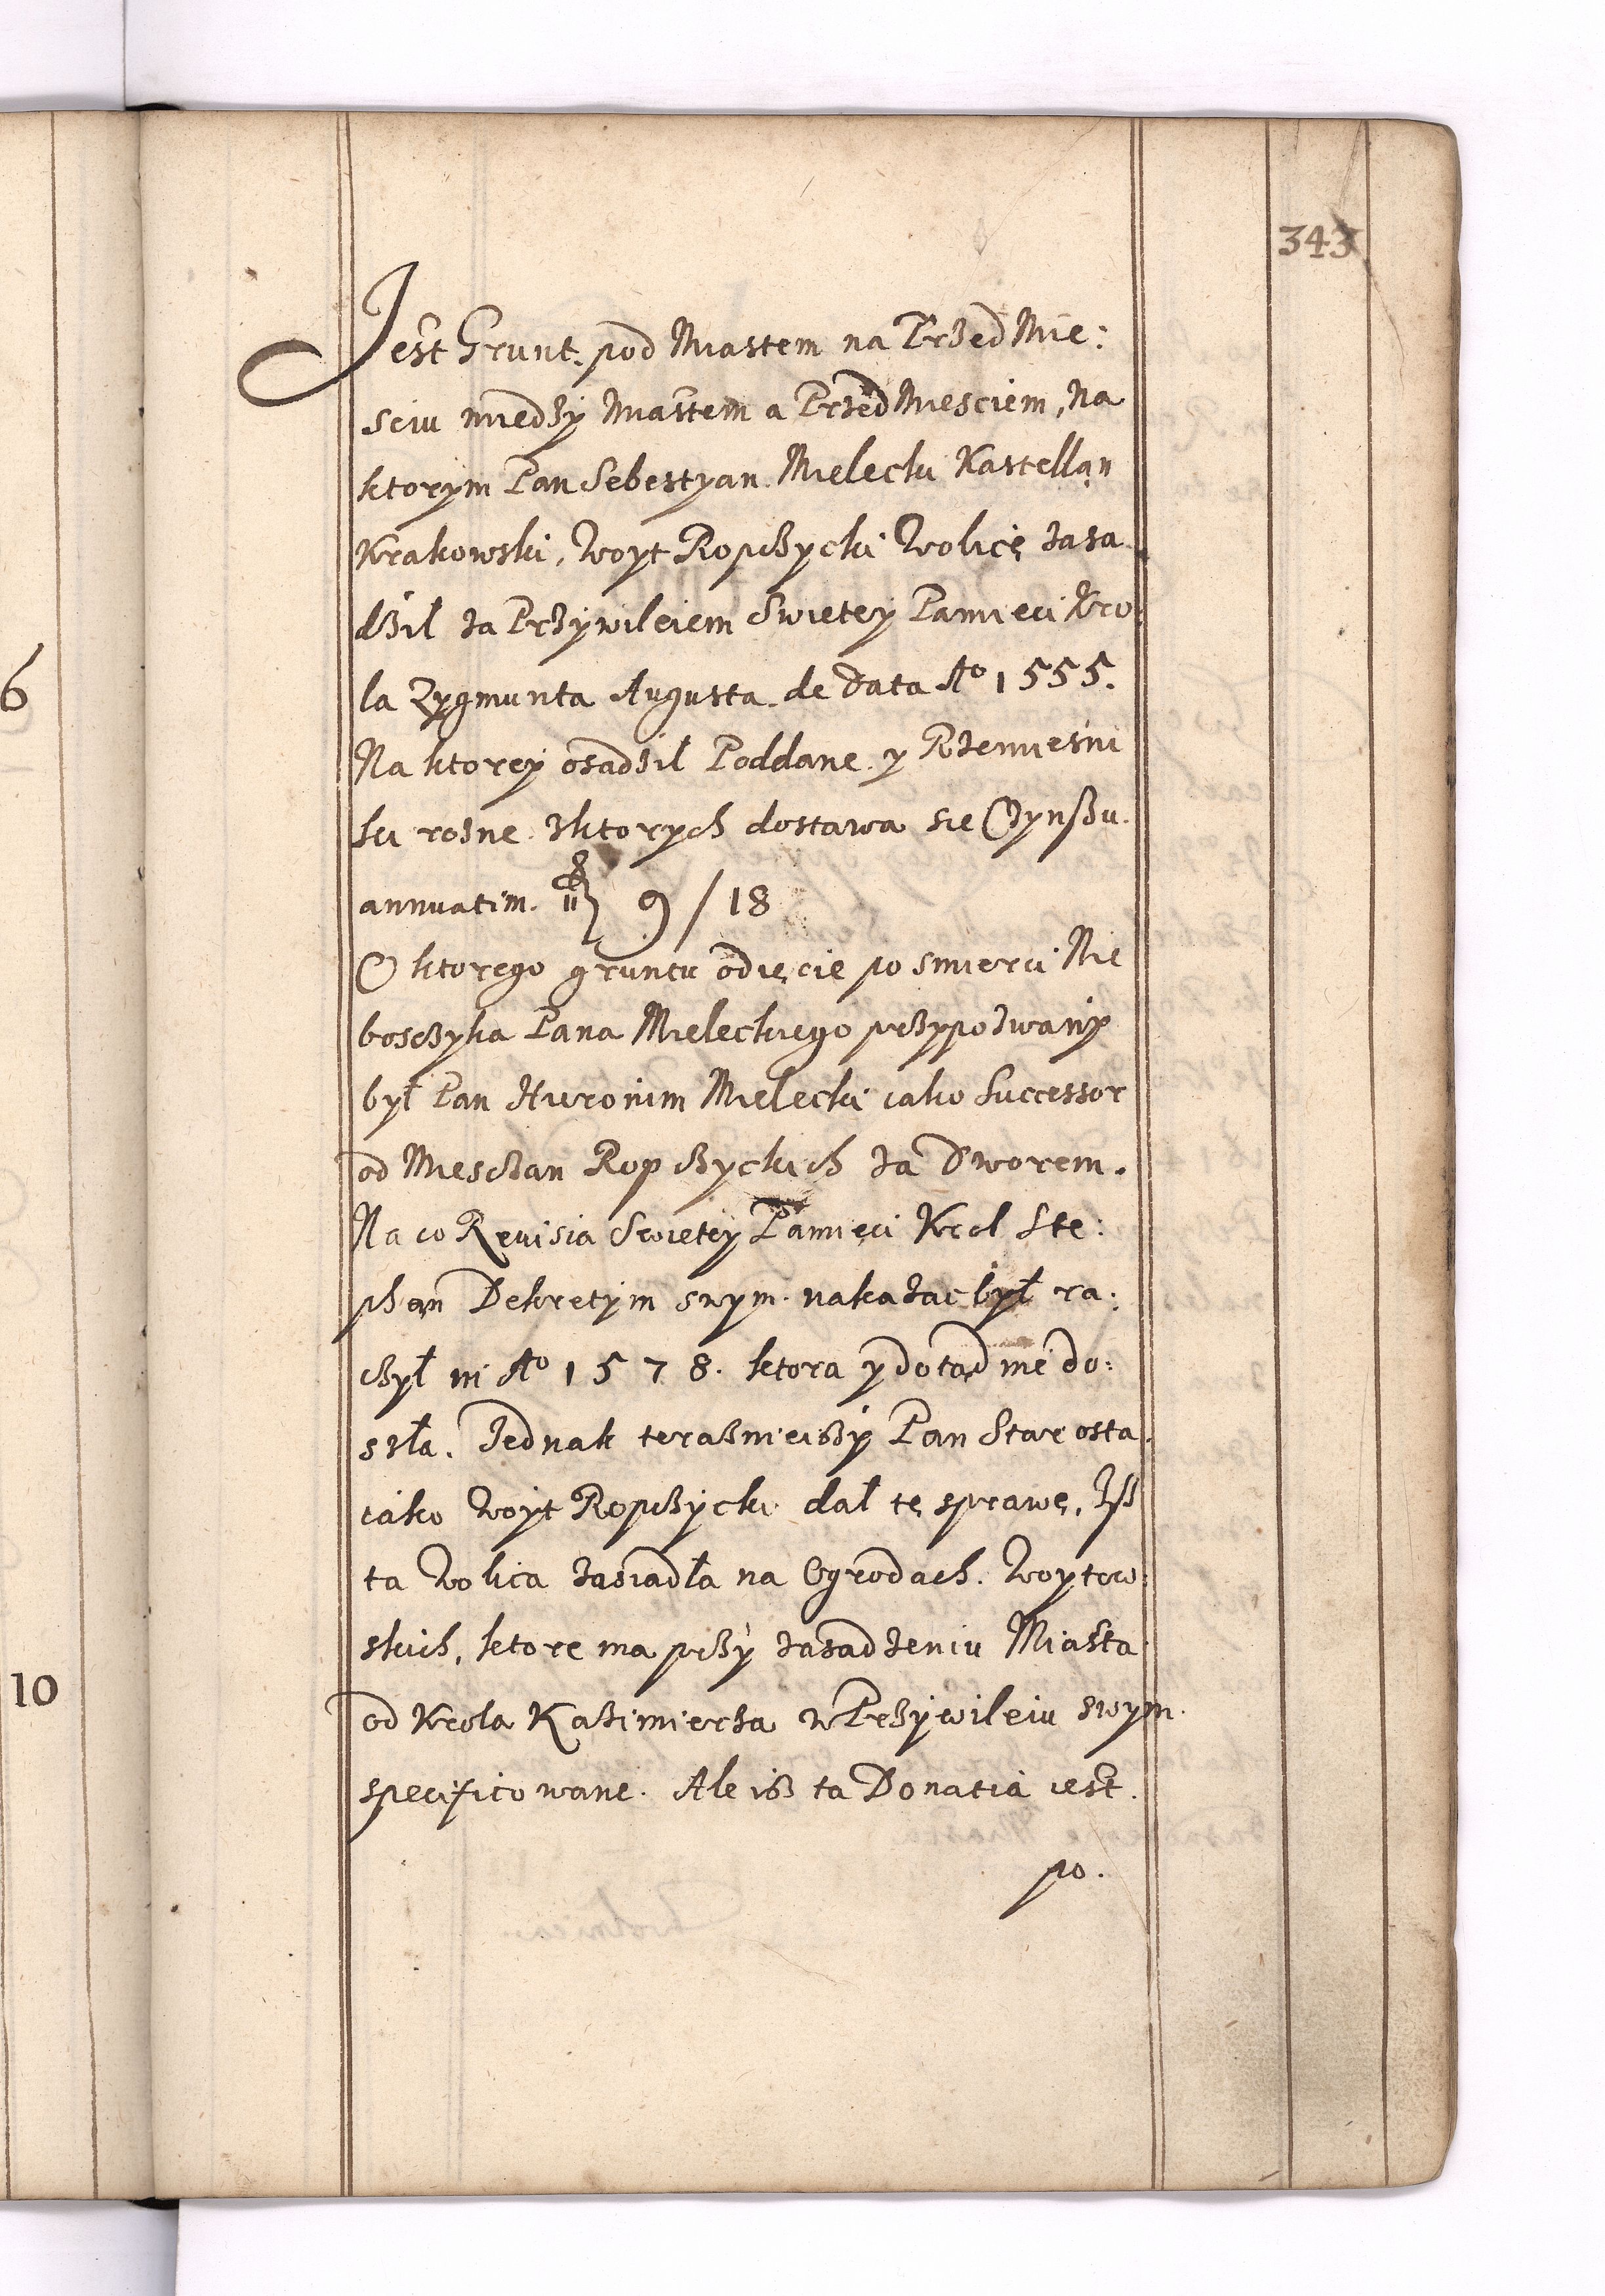 343
Jest Grunt. pod Miastem na Przed Mie:
sciu miedzy Miastem a Przed Miesciem, Na
ktorym Pan Sebestyan Mielecki Kastellan
Krakowski, Woyt Ropczycki Wolicę zasa
dził za Przywileiem Swietey Pamieci Kro
la Zygmunta Augusta. de data Aº 1555.
Na ktorey osadził Poddane. y Rzemieśni
ki rozne. zktorych dostawa sie Czynszu.
annuatim. 9/18
O ktorego gruntu odięcie po smierci Nie
boszczyka Pana Mieleckiego przypozwany
był Pan Hieronim Mielecki iako Successor
od Miesczan Ropczyckich za Dworem.
Na co Reuisia Swietey Pamięci Krol Ste:
phan Dekretym swym. nakazac był ra:
czył in Aº 1578. ktora y dotąd nie do:
szła. Jednak teraznieiszy Pan Starosta
iako Woyt Ropczycki dał tę sprawę, Isz
ta Wolica zasiadła na Ogrodach. Woytow
skich, ktore ma przy zasadzeniu Miasta
od Krola Kazimierza w Przywileiu swym.
specificowane. Ale isz ta Donatia iest.
po.
6
10